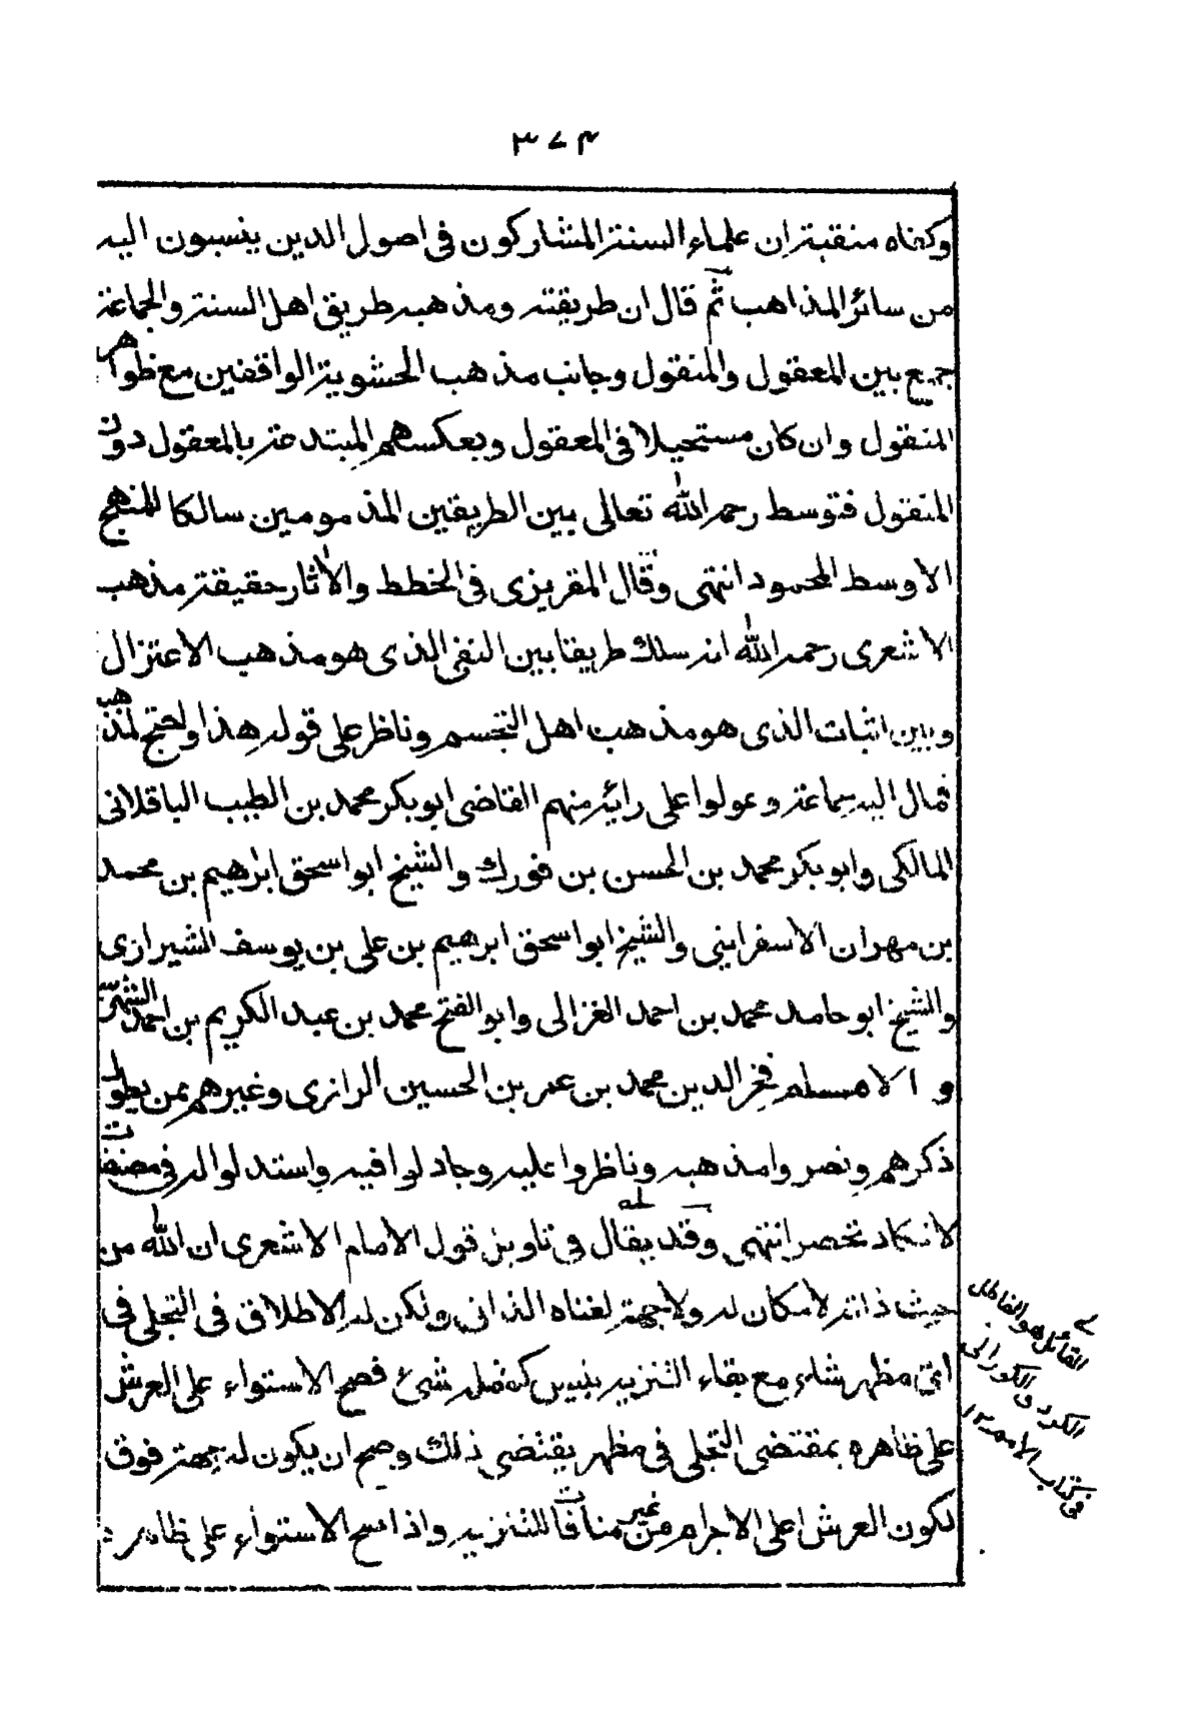 ٣٧٤
وكفاه منقبة ان علماء السنة المشاركون فى اصول الدين ينسبون اليه
من سائر المذاهب ثم قال ان طريقته ومذهبه طريق اهل السنة والجماعة
جميع بين المعقول والمنقول وجانب مذهب الحشوية الواقفين مع ظواهر
المنقول وان كان مستحيلا فى المعقول وبعكسهم المبتدعة بالمعقول دون
المنقول فتوسط رحمه الله تعالى بين الطريقين المذمومين سالكا للمنهج
الاوسط المحمود انتهى وقال المقريزى فى الخطط والاثار حقيقة مذهب
الاشعرى رحمه الله انه سلك طريقا بين النفى الذى هو مذهب الاعتزال
وبين اثبات الذى هو مذهب اهل التجسم وناظر على قوله هذا واحتج لمذهبه
فمال اليه جماعة وعولوا على رائه منهم القاضى ابو بكر محمد بن الطيب الباقلانى
المالكى وابو بكر محمد بن الحسن بن فورك والشيخ ابو اسحق ابرهيم بن محمد
بن مهران الاسفراينى والشيخ ابو اسحق ابرهيم بن على بن يوسف الشيرازى
والشيخ ابو حامد محمد بن احمد الغزالى وابو الفتح محمد بن عبد الكريم بن احمد الشهرس
و الامسلم فخر الدين محمد بن عمر بن الحسين الرازى وغيرهم ممن يطول
ذكرهم ونصروا مذهبه وناظروا عليه وجادلوا فيه واستدلوا له فى مصنفات
لا تكاد تحصر انتهى وقد يقال فى تاويل قول الامام الاشعرى ان الله من
حيث ذاته لا مكان له ولا جهة لغناه الذاتى ولكن له الاطلاق فى التجلى فى
اى مظهر شاء مع بقاء التنزيه بليس كمثله شئ فصح الاستواء على العرش
على ظاهره بمقتضى التجلى فى مظهر يقتضى ذلك وصح ان يكون له جهة فوق
لكون العرش اعلى الاجرام من غير منافاة للتنزيه واذا صح الاستواء على ظاهره
له القائل هو الفاضل
الكردى الكورانى
فى كتاب الامم ١٢